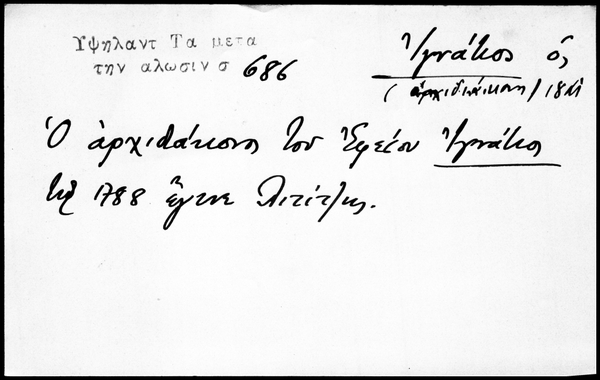 Υψηλαντ Τα μετα
την αλωσιν σ 686
Ἰγνάτιος ὁ,
(ἀρχιδιάκονος) 18
Ὁ ἀρχιδιάκονος τοῦ Ἐφέσου Ἰγνάτιος
τῷ 1788 ἔγινε Λιτίτζης.